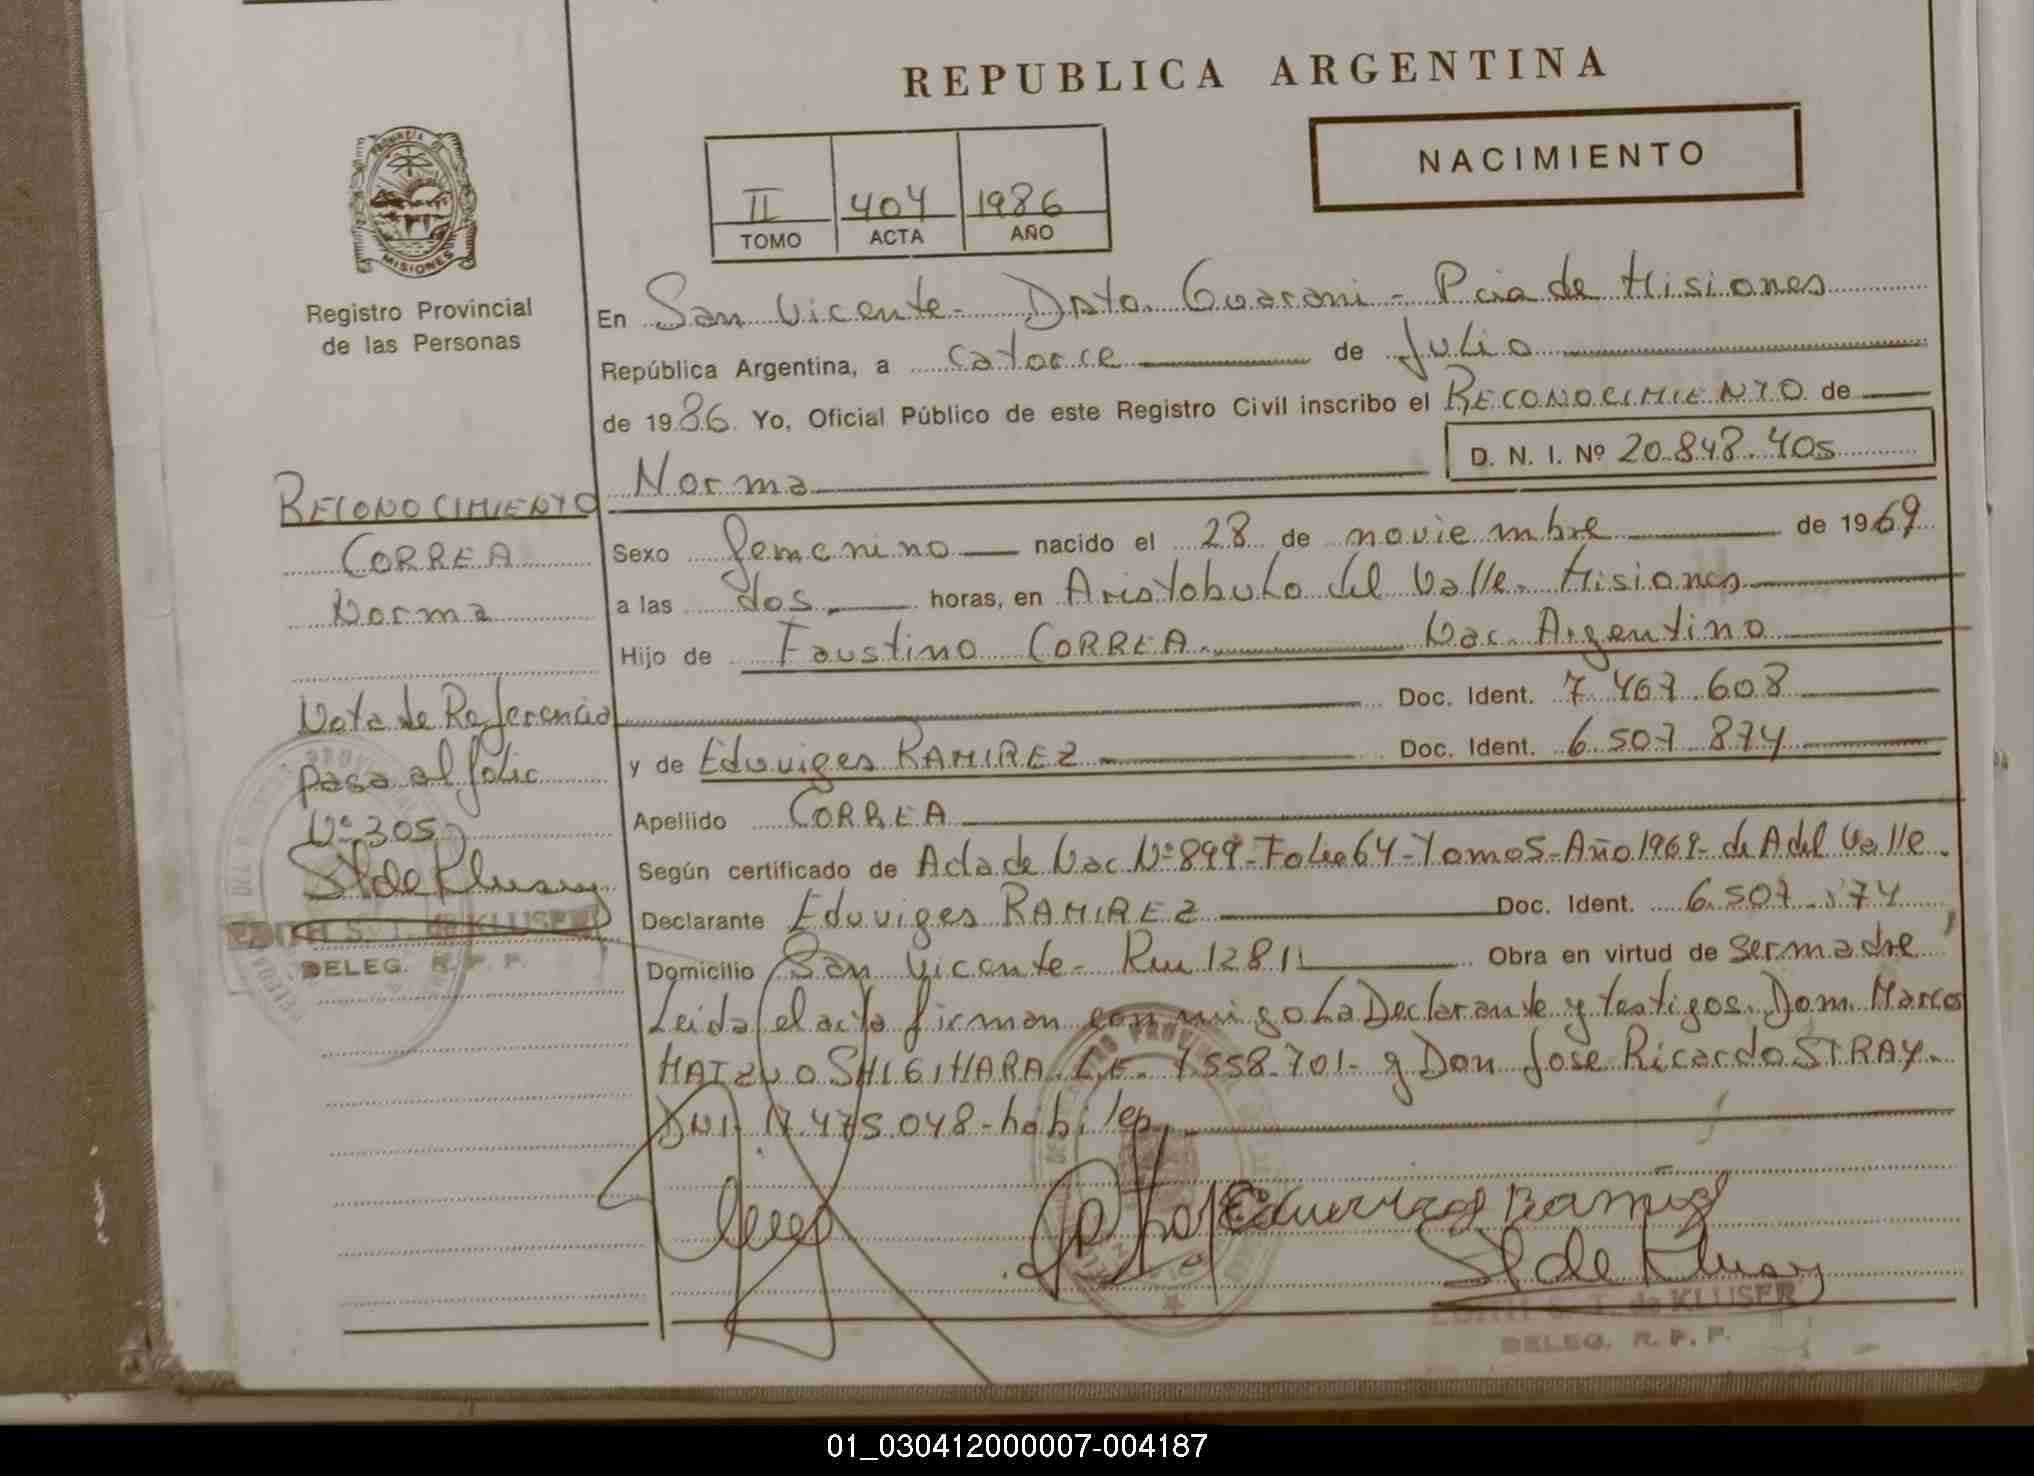 REPUBLICA ARGENTINA
NACIMIENTO
II 404 1986
TOMO ACTA AÑO
PROVINCIA DE
MISIONES
Registro Provincial
de las Personas
En San Vicente - Dpto. Guarani - Pcia de Misiones
República Argentina, a catorce de Julio
de 1986. Yo, Oficial Público de este Registro Civil inscribo el RECONOCIMIENTO de
D. N. I. Nº 20.848.405
Norma
Sexo femenino nacido el 28 de noviembre de 1969
a las dos horas, en Aristobulo del Valle - Misiones
Hijo de Faustino CORREA Nac. Argentino
Doc. Ident. 7.467.608
y de Eduviges RAMIREZ Doc. Ident. 6.507.874
Apellido CORREA
Según certificado de Acta de Nac Nº 899 - Folio 64 - Tomo 5 - Año 1969 - de A del Valle.
Declarante Eduviges RAMIREZ Doc. Ident. 6.507.874
Domicilio San Vicente - Obra en virtud de ser madre
Leida el acta firman conmigo La Declarante y testigos. Dom. Marcos
SHIGIHARA L.E. 7.558.701 - y Don Jose Ricardo STRAY -
DNI. 17.475.048 - habiles
RECONOCIMIENTO
CORREA
Norma
Nota de Referencia
pasa al folio
Nº 305
St de Kluser
EDITH S. T. de KLUSER
DELEG. R. P. P.
Eduviges Ramirez
St de Kluser
EDITH S. T. de KLUSER
DELEG. R. P. P.
01_030412000007-004187